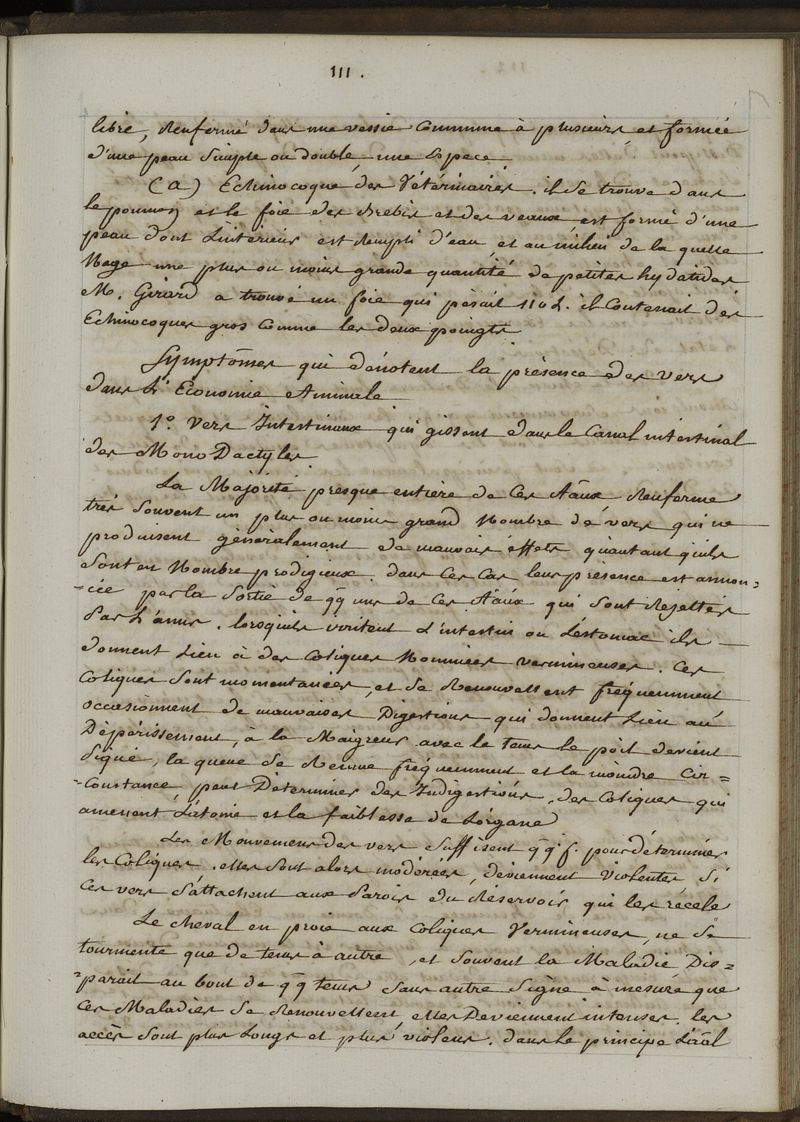 111.
libre, Renfermé dans une vessie Commune à plusieurs, et formée
d'une peau Simple ou double, une Espece
(a) Echinocoque des Vétérinaires. il se trouve dans
le poumon et le foie des Brebis et des veaux est formé d'une
peau dont L'interieur est Rempli d'eau, et au milieu de la quelle
Nage une plus ou moins grande quantité de petites hydatides
M. Girard a trouvé un foie qui pesait 110 L. il Contenait des
Echinocoques gros Comme les deux poingts
Symptômes qui dénotent la présence des Vers
dans L'Economie Animale
1.° Vers Intestinaux qui gissent dans le Canal intestinal
des Mono Dactyles
La Majorité presque entière de Ces Aāux Renferme
très Souvent un plus ou moins grand Nombre de vers qui ne
produisent généralement de mauvais éffets qu'autant qu'ils
Sont en Nombre prodigieux. dans Ces Cas leur présence est annon=
=cée par la Sortie de qq uns de Ces Aāux qui Sont Rejettés
Par L'anus. lorsqu'ils irritent L'intestin ou L'éstomac ils
donnent Lieu à des Coliques Nommées vermineuses. Ces
Coliques Sont momentanées, et se Renouvellent fréquemment
occasionnent de mauvaises Digestions qui donnent Lieu au
Dépérissement, à la Maigreur avec le tems le poil devient
Piqué, la queue se Remue fréquemment et la moindre Cir=
=Constance peut Déterminer des Indigestions, des Coliques qui
amenent L'atonie et la faiblesse de L'organe
Les Mouvemens des vers Suffisent qq f. pour déterminer
les Coliques. elles Sont alors modérées, deviennent violentes Si
Ces vers S'attachent aux Parois du Réservoir qui les récele
Le cheval en proie aux Coliques Vermineuses, ne Se
tourmente que de tems à autre, et Souvent la Maladie Dis=
=parait au bout de qq tems Sans autre Signe à mesure que
Ces Maladies Se Renouvellent elles Deviennent intenses. les
accès Sont plus Longs et plus violens. dans le principe L'āal